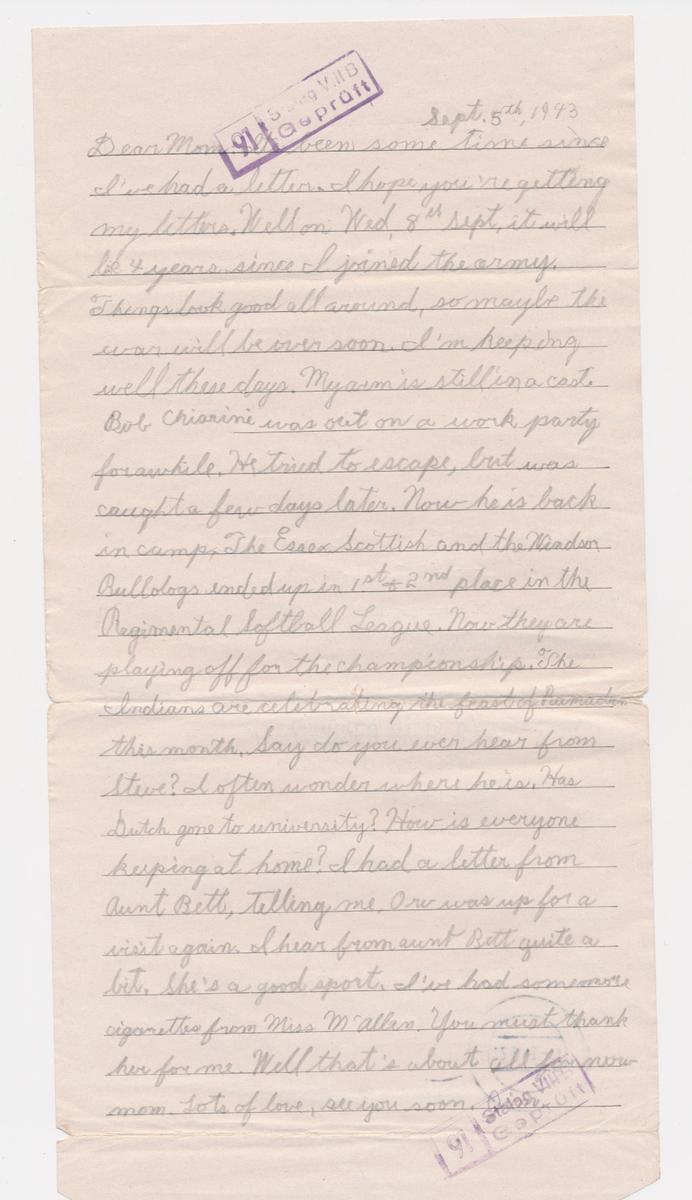 91 Stalag VIIB
Geprüft
Sept. 5th, 1943
Dear Mom. It's been some time since
I've had a letter. I hope you're getting
my letters. Well on Wed, 8th Sept, it will
be 4 years since I joined the army.
Things look good all around, so maybe the
war will be over soon. I'm keeping
well these days. My arm is still in a cast.
Bob Chiarini was out on a work party
for awhile. He tried to escape, but was
caught a few days later. Now he is back
in camp. The Essex Scottish and the Windsor
Bulldogs ended up in 1st + 2nd place in the
Regimental Softball League. Now they are
playing off for the championship. The
Indians are celebrating the feast of
this month. Say do you ever hear from
Steve? I often wonder where he is. Has
Dutch gone to university? How is everyone
keeping at home? I had a letter from
Aunt Bett, telling me. Orv was up for a
visit again. I hear from aunt Bett quite a
bit. She's a good sport. I've had some more
cigarettes from Miss McAllen. You must thank
her for me. Well that's about all for now
mom. Lots of love, see you soon.
91 Stalag VIIB
Geprüft